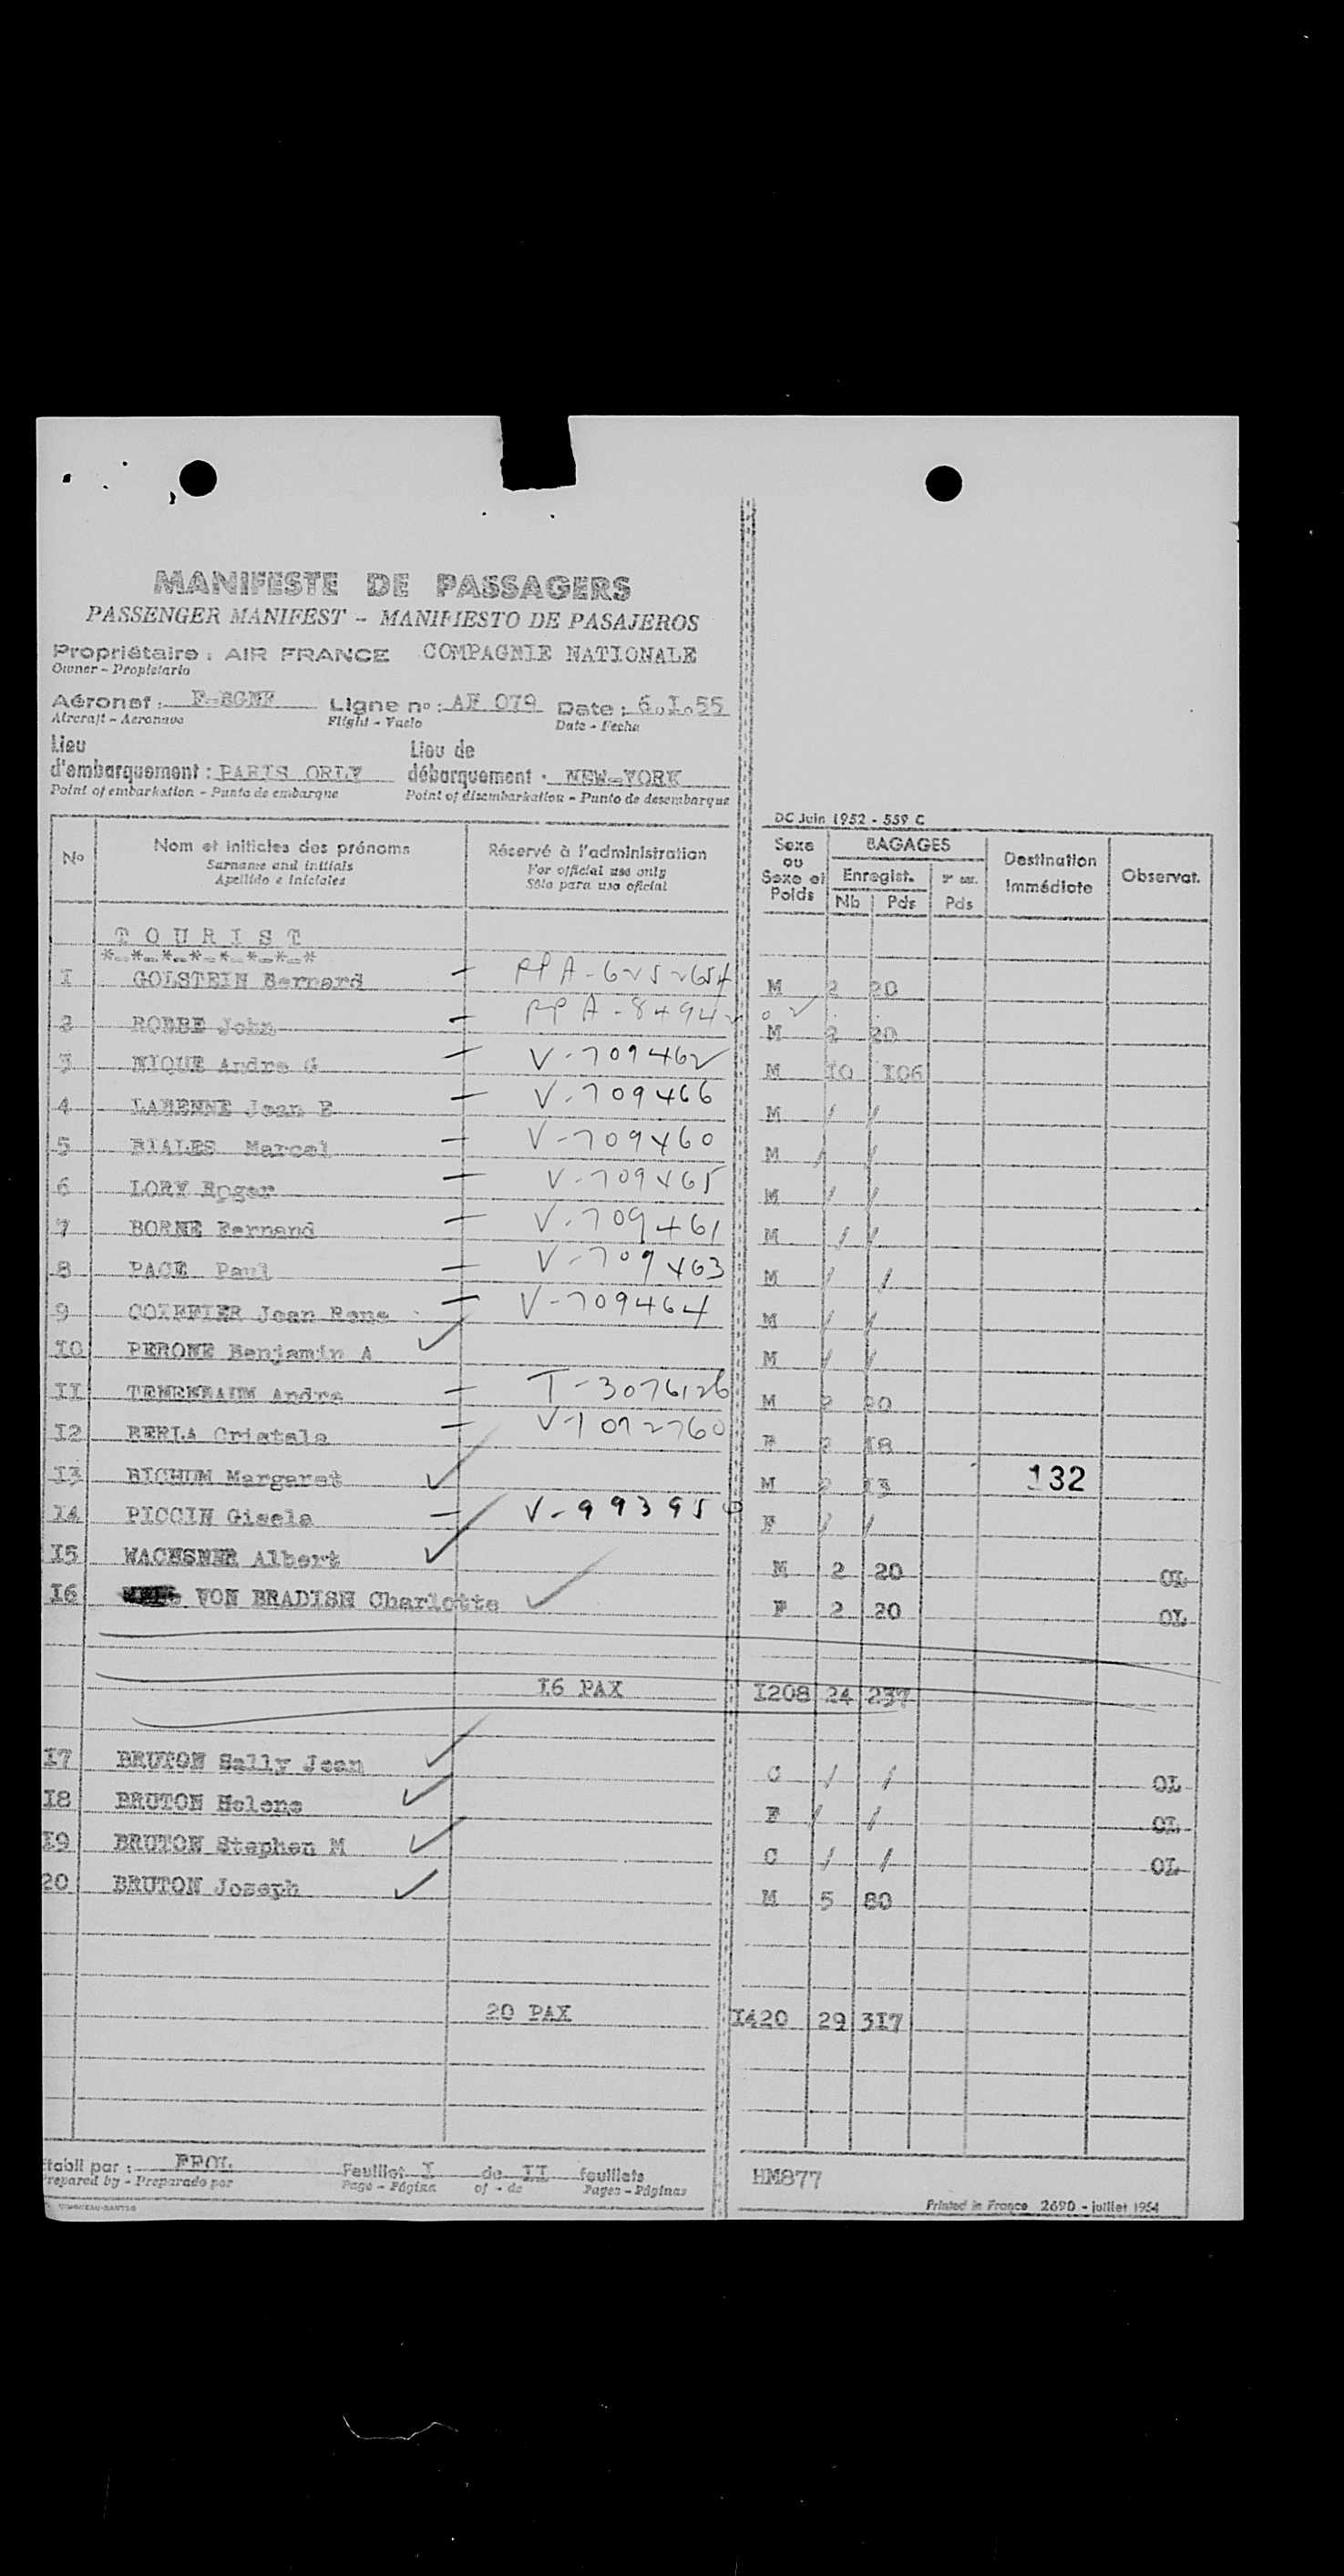 MANIFESTE DE PASSAGERS
PASSENGER MANIFEST - MANIFIESTO DE PASAJEROS
Propriétaire : AIR FRANCE COMPAGNIE NATIONALE
Owner - Propietario
Aéronef : Ligne no : AF 079 Date : 6.I.55
Aircraft - Aeronave Flight - Vuelo Date - Fecha
Lieu Lieu de
d'embarquement : PARIS ORLY débarquement : NEW-YORK
Point of embarkation - Punto de embarque Point of disembarkation - Punto de desembarque
DC Juin 1952 - 559 C
No Nom et initiales des prénoms Réservé à l'administration Sexe ou Sexe et Poids BAGAGES Destination Immédiate Observat.
Surname and initials For official use only Enregist. Pds
Apellido e iniciales Sólo para uso oficial Nb Pds
T O U R I S T
*-*-*-*-*-*-*-*
1 GOLSTEIN Bernard - M 2 20
2 ROBBE John - M 2 20
3 NIQUE Andre G - V-709462 M IO I06
4 LABENNE Jean E - V-709466 M / /
5 BIALES Marcel - V-709460 M / /
6 LORY Roger - V-709465 M / /
7 BORNE Fernand - V-709461 M / /
8 PACE Paul - V-709463 M / /
9 COIFFIER Jean Rene - V-709464 M / /
IO PERONE Benjamin A ✓ M / /
II TENENBAUM Andre - T-3076126 M 2 20
I2 BERLA Cristala - V-1092760 F 2 I8
I3 Margaret ✓ M 2 I3 132
I4 PICCIN Gisela - F / /
I5 WACHSNER Albert ✓ M 2 20 OL
I6 VON BRADISH Charlotte ✓ F 2 20 OL
I6 PAX I208 24 237
I7 BRUTON Sally Jean ✓ C / / OL
I8 BRUTON Helene ✓ F / / OL
I9 BRUTON Stephen M ✓ C / / OL
20 BRUTON Joseph ✓ M 5 80
20 PAX I420 29 317
Etabli par : Feuillet I de II feuillets HM877
Prepared by - Preparado por Page - Página of - de Pages - Páginas
Printed in France 2690 - juillet 1954